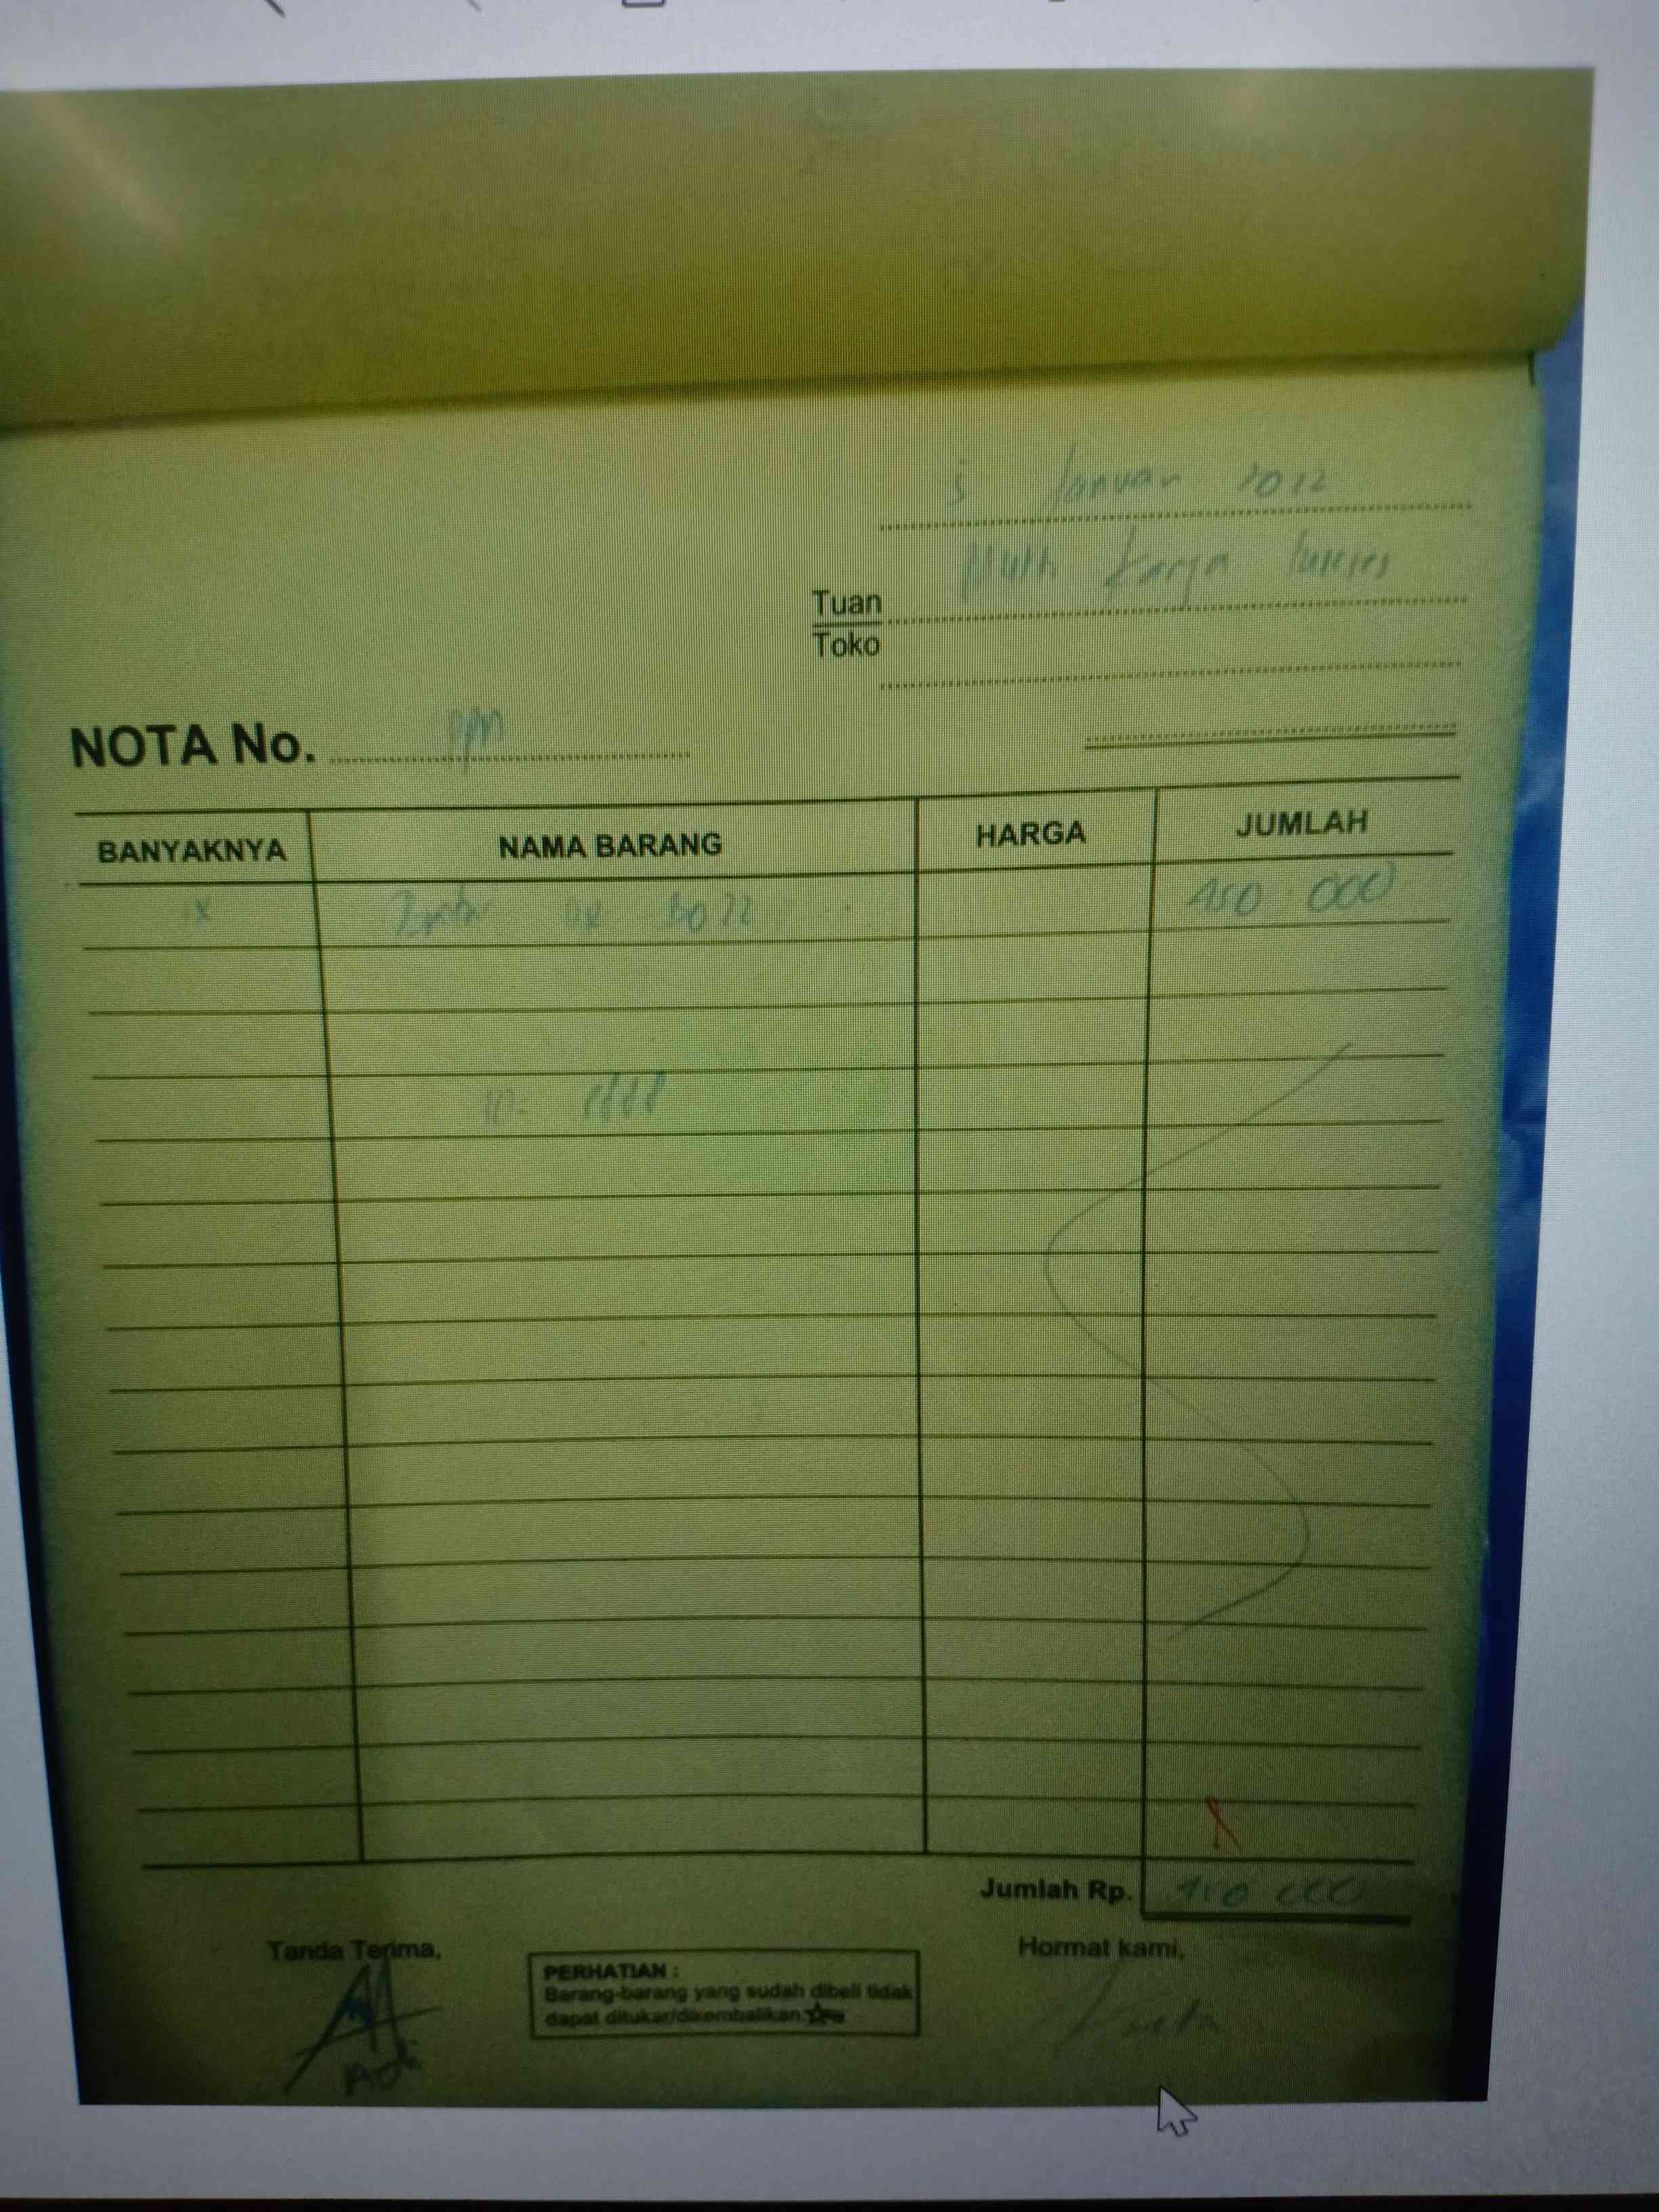 5 Januari 2012
Multi Karya Sukses
Tuan
Toko
NOTA No.
BANYAKNYA NAMA BARANG HARGA JUMLAH
450 000
Jumlah Rp. 450 000
Tanda Terima, Hormat kami,
PERHATIAN :
Barang-barang yang sudah dibeli tidak
dapat ditukar/dikembalikan